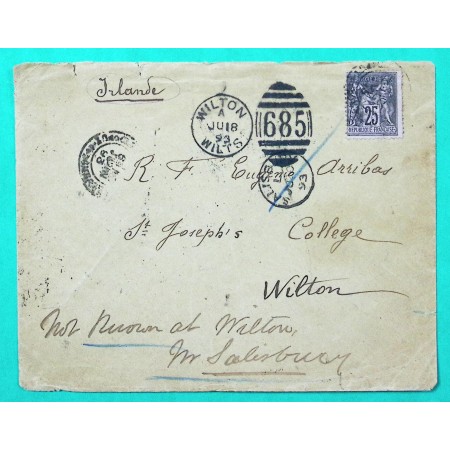 Irlande
WILTON
A
JU 18
93
WILTS
685
25
REPUBLIQUE FRANÇAISE
93
R F Eugenio Arribas
St Joseph's College
Wilton
Not Known at Wilton,
Nr Salisbury